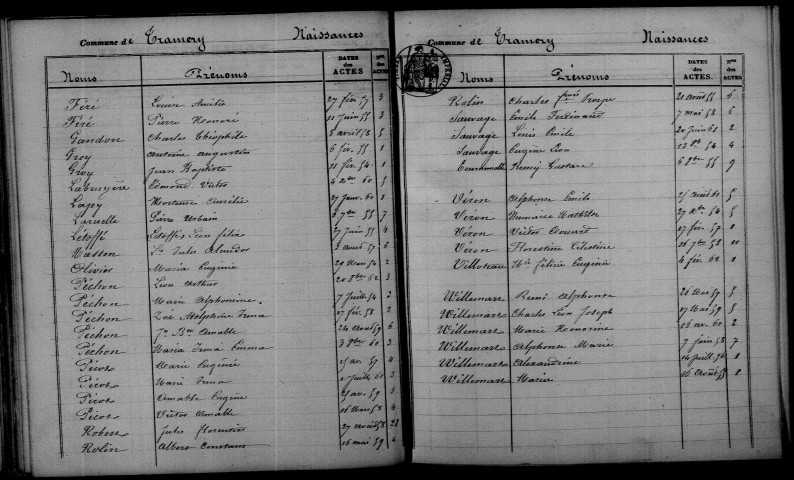 Commune de Tramery Naissances
Noms Prénoms DATES des ACTES Nos des ACTES
Féré Louise Amélie 27 fév. 57 3
Féré Pierre Honoré 11 juin 55 3
Gandon Charles Théophile 8 avril 58 5
Groy Antoine Augustin 6 fév. 55 1
Groy Jean Baptiste 11 fév. 54 1
Labruyère Edmond Victor 4 Xbre 60 5
Lapy Hortense Aurélie 27 janv. 60 1
Laruelle Pierre Urbain 6 7bre 55 7
Létoffé Létoffé Léon félix 27 juin 55 4
Masson Jules 3 Août 57 6
Olivier Maria Eugénie 29 Mars 54 2
Péchon Léon Arthur 20 8bre 62 3
Péchon Marie Alphonsine 7 juillet 54 2
Péchon Zoé Adolphine Irma 17 fév. 58 2
Péchon Jn Bte Amable 24 Août 59 6
Péchon Maria Irma Emma 3 8bre 60 3
Picot Marie Eugénie 25 av. 57 4
Picot Marie Irma juillet 61 3
Picot Amable Eugène 21 av. 59 3
Picot Victor Amable 16 Mars 58 4
Robert Jules florentin 29 Août 58
Rolin Albert Constant 16 mai 59 4
Commune de Tramery Naissances
Noms Prénoms DATES des ACTES. Nos des ACTES
Rolin Charles frois Prosper 20 Août 55 6
Sauvage Emile Ferdinand 7 mai 58 6
Sauvage Louis Emile 20 juin 61 2
Sauvage Eugène Léon 12 8bre 54 4
Remy Gustave 6 8bre 55 9
Véron Alphonse Emile 25 Août 60 5
Véron Mathilde 27 Xbre 54 5
Véron Victor Edouard 17 fév. 57 1
Véron Florentine Célestine 16 7bre 58 10
Villoteau Mie Félicie Eugénie 4 fév. 62 1
Willemart Remi Alphonse 26 Mai 59 5
Willemart Charles Léon Joseph 17 Mai 59 5
Willemart Marie Honorine 16 av. 60 2
Willemart Alphonse Marie 7 juin 58 7
Willemart Alexandrine 14 juillet 56 1
Willemart Marie 16 Août 55 1